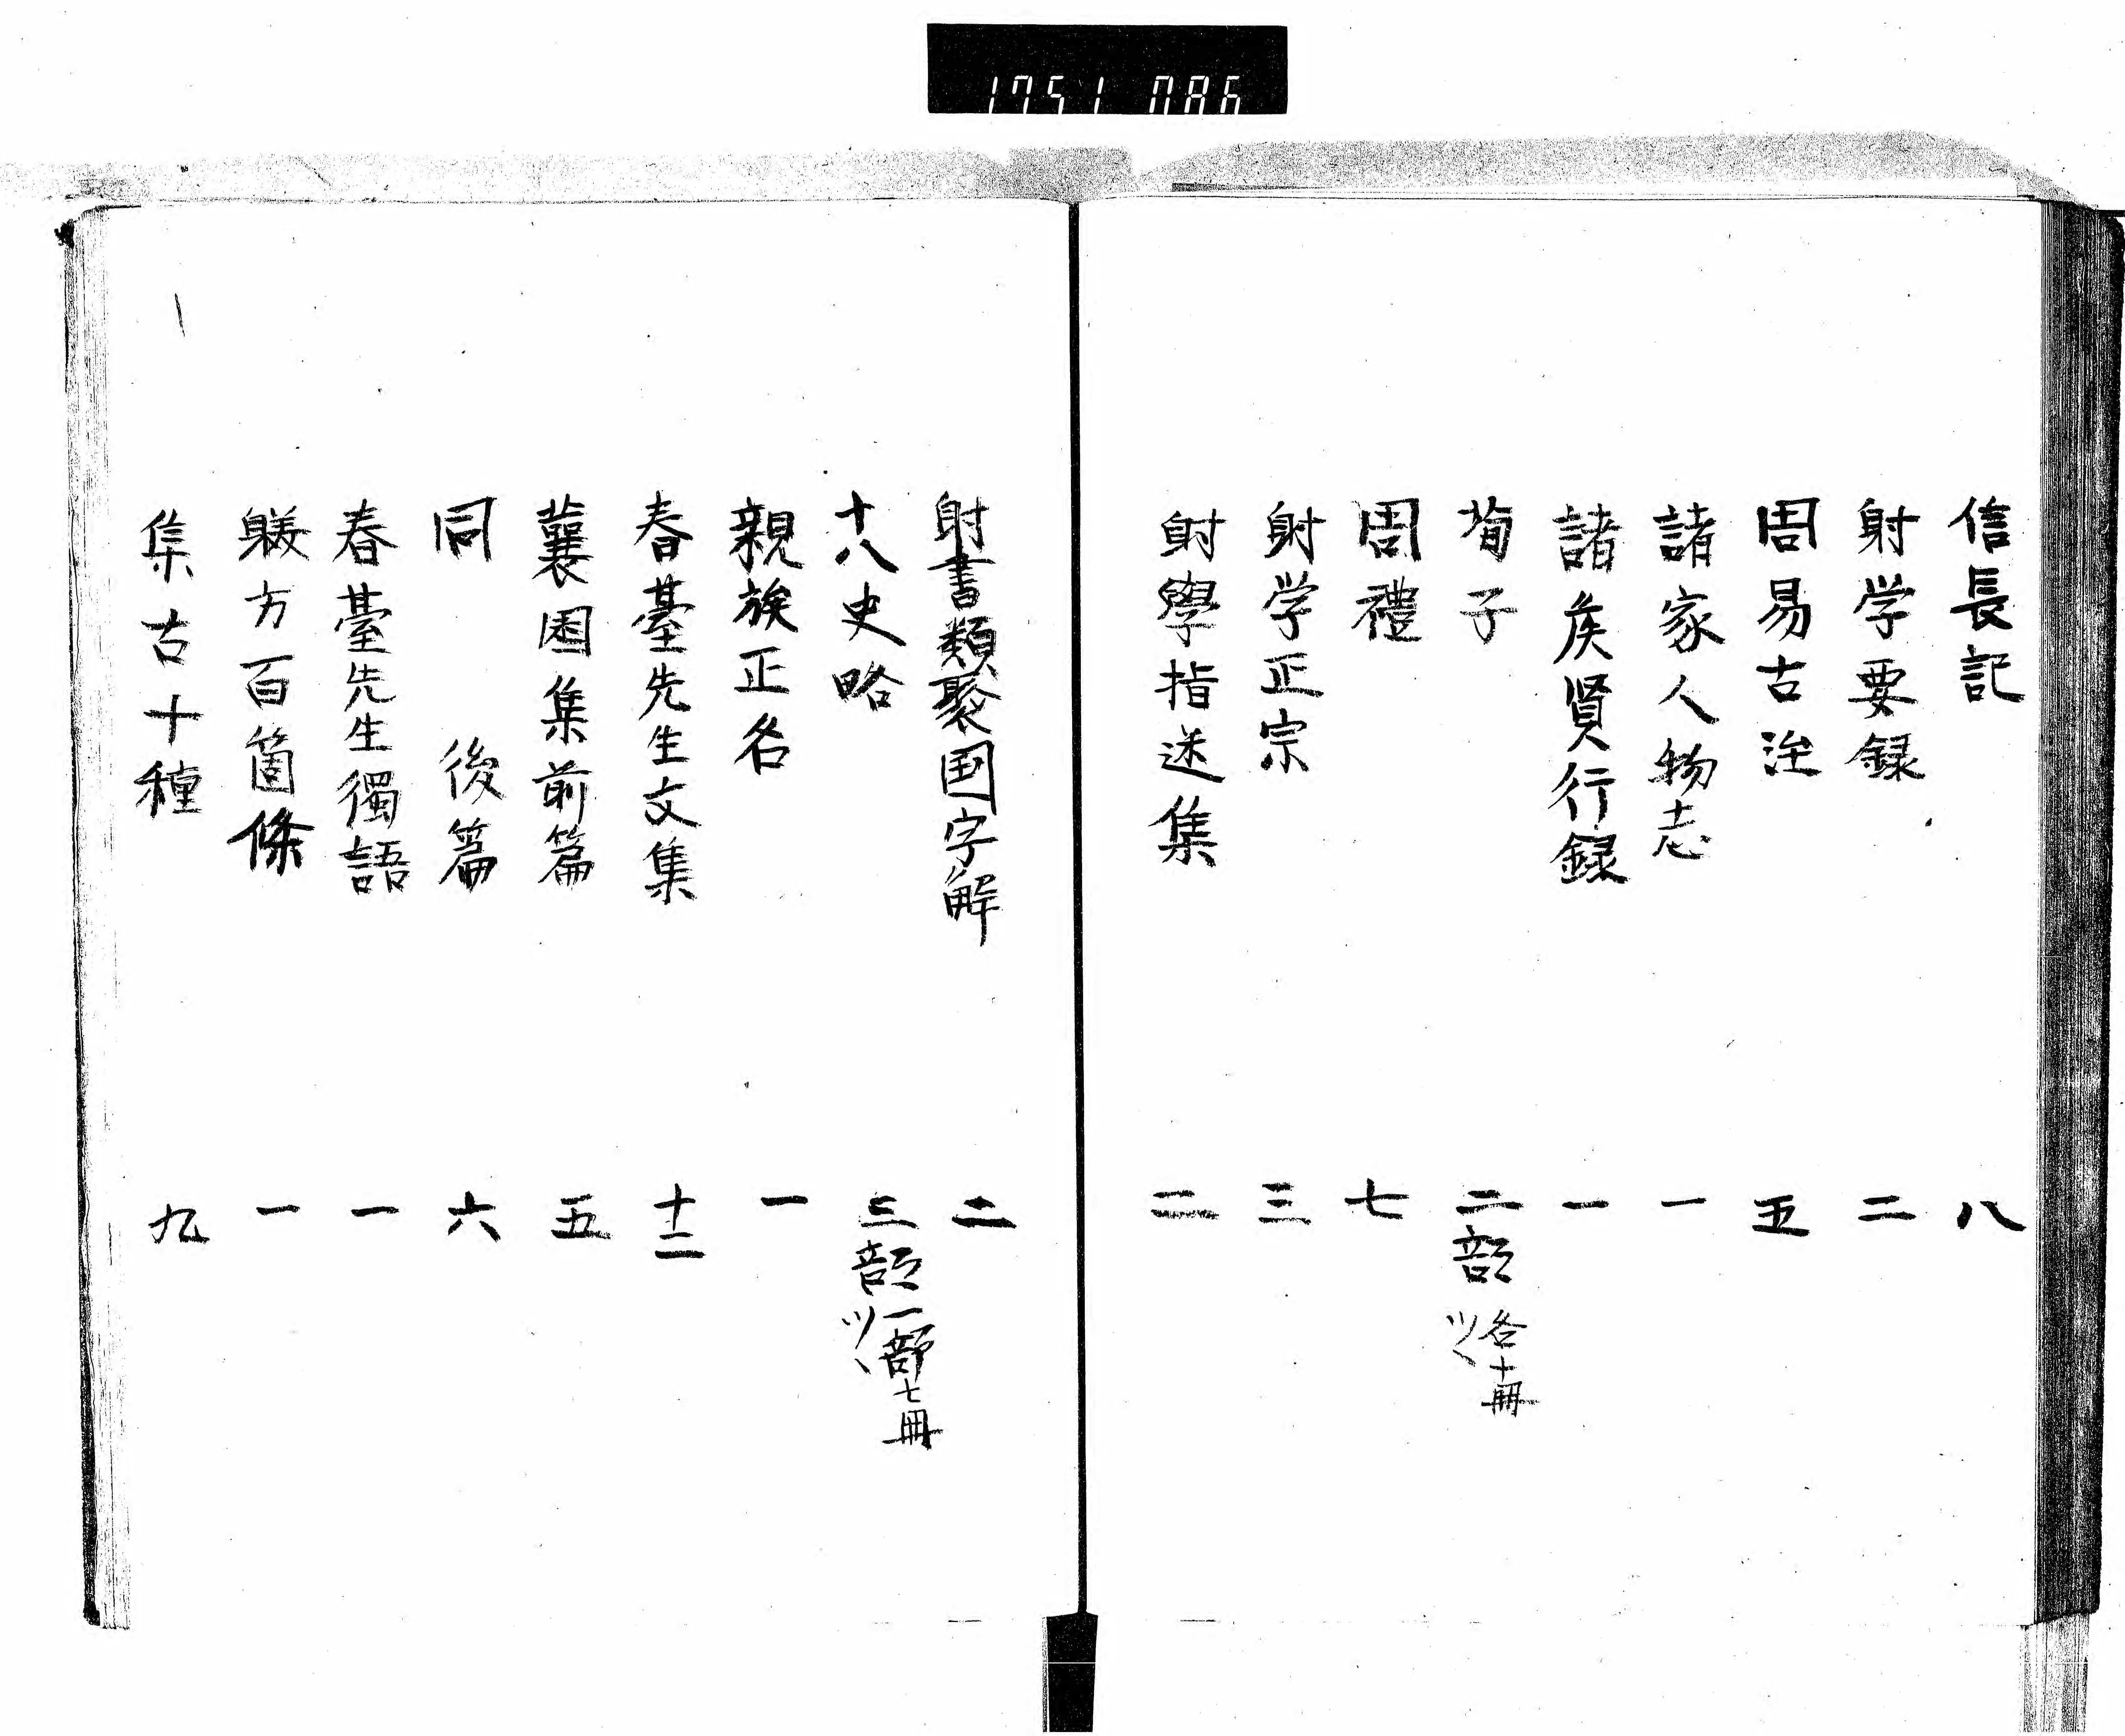 1751 086
信長記 八
射学要録 二
周易古注 五
諸家人物志 一
諸矦賢行録 一
荀子 二部 各十冊ツヽ
周禮 七
射学正宗 三
射學指迷集 二
射書類聚国字解 二
十八史略 三部 一部七冊ツヽ
親族正名 一
春臺先生文集 十二
蘘園集前篇 五
同 後篇 六
春臺先生獨語 一
躾方百箇條 一
集古十種 九